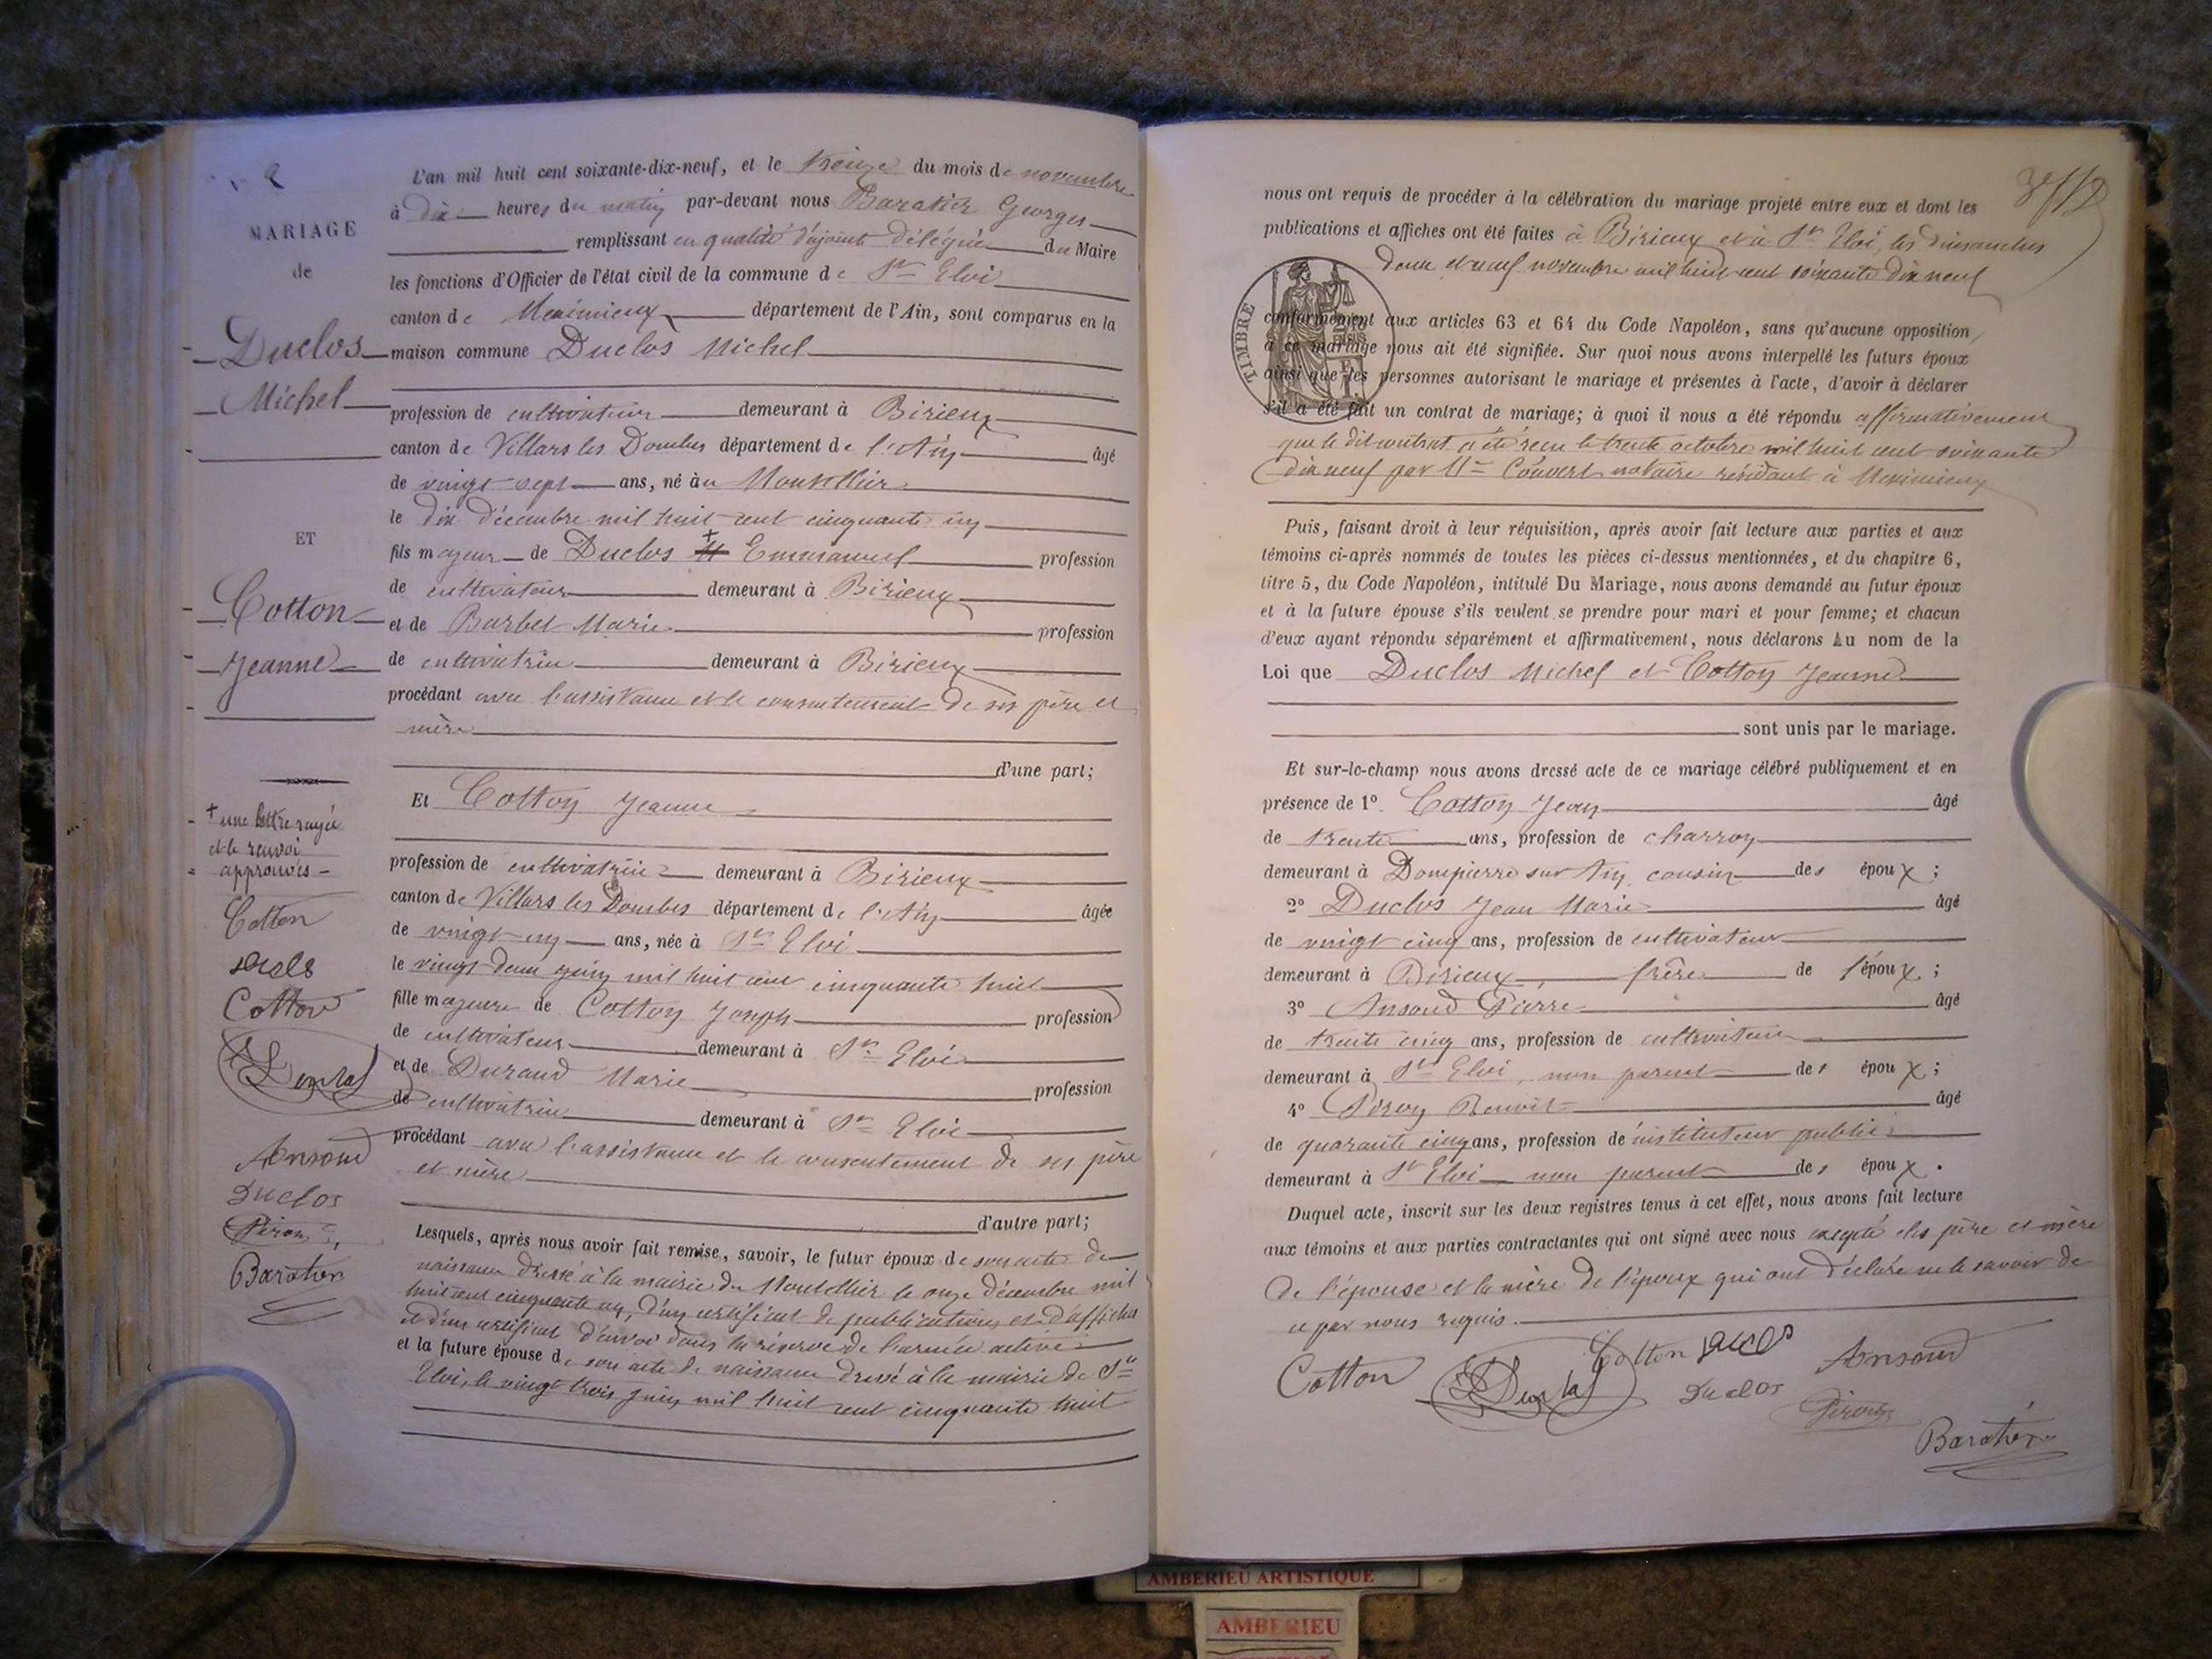 n 2
MARIAGE
de
Duclos
Michel
ET
Cotton
Jeanne
+ une lettre rayée
et le renvoi
approuvés
Cotton
Cotton
Ansoud
Duclos
Piron
Baratier
L'an mil huit cent soixante-dix-neuf, et le treize du mois de novembre
à dix heures du matin par-devant nous Baratier Georges
remplissant en qualité d'ajoint délégué du Maire
les fonctions d'Officier de l'état civil de la commune de Ste Eloi
canton de Meximieux département de l'Ain, sont comparus en la
maison commune Duclos Michel
profession de cultivateur demeurant à Birieux
canton de Villars les Dombes département de l'Ain âgé
de vingt sept ans, né au Montellier
le dix décembre mil huit cent cinquante un
fils majeur de Duclos + Emmanuel profession
de cultivateur demeurant à Birieux
et de Barbet Marie profession
de cultivatrice demeurant à Birieux
procédant avec l'assistance et le consentement de ses père et
mère
d'une part;
Et Cotton Jeanne
profession de cultivatrice demeurant à Birieux
canton de Villars les Dombes département de l'Ain âgée
de vingt un ans, née à Ste Eloi
le vingt deux juin mil huit cent cinquante huit
fille majeure de Cotton Joseph profession
de cultivateur demeurant à Ste Eloi
et de Durand Marie profession
de cultivatrice demeurant à Ste Eloi
procédant avec l'assistance et le consentement de ses père
et mère
d'autre part;
Lesquels, après nous avoir fait remise, savoir, le futur époux de son acte de
naissance dressé à la mairie du Montellier le onze décembre mil
huit cent cinquante un, d'un certificat de publications et d'affiches
et d'un certificat d'envoi dans la réserve de l'armée active
et la future épouse de son acte de naissance dressé à la mairie de Ste
Eloi, le vingt trois juin mil huit cent cinquante huit
nous ont requis de procéder à la célébration du mariage projeté entre eux et dont les
publications et affiches ont été faites à Birieux et à Ste Eloi, les dimanches
deux et neuf novembre mil huit cent soixante dix neuf
TIMBRE
conformément aux articles 63 et 64 du Code Napoléon, sans qu'aucune opposition
à ce mariage nous ait été signifiée. Sur quoi nous avons interpellé les futurs époux
ainsi que les personnes autorisant le mariage et présentes à l'acte, d'avoir à déclarer
s'il a été fait un contrat de mariage; à quoi il nous a été répondu affirmativement
que le dit contrat a été reçu le trente octobre mil huit cent soixante
dix neuf par Me Couvert notaire résidant à Meximieux
Puis, faisant droit à leur réquisition, après avoir fait lecture aux parties et aux
témoins ci-après nommés de toutes les pièces ci-dessus mentionnées, et du chapitre 6,
titre 5, du Code Napoléon, intitulé Du Mariage, nous avons demandé au futur époux
et à la future épouse s'ils veulent se prendre pour mari et pour femme; et chacun
d'eux ayant répondu séparément et affirmativement, nous déclarons Au nom de la
Loi que Duclos Michel et Cotton Jeanne
sont unis par le mariage.
Et sur-le-champ nous avons dressé acte de ce mariage célébré publiquement et en
présence de 1º Cotton Jean âgé
de trente ans, profession de charron
demeurant à Dompierre sur Ain cousin des époux;
2º Duclos Jean Marie âgé
de vingt cinq ans, profession de cultivateur
demeurant à Birieux, frère de l'époux;
3º Ansoud Pierre âgé
de trente cinq ans, profession de cultivateur
demeurant à Ste Eloi, non parent des époux;
4º Piron Benoit âgé
de quarante cinq ans, profession de instituteur public
demeurant à St Eloi non parent des époux.
Duquel acte, inscrit sur les deux registres tenus à cet effet, nous avons fait lecture
aux témoins et aux parties contractantes qui ont signé avec nous excepté les père et mère
de l'épouse et la mère de l'époux qui ont déclaré ne le savoir de
ce par nous requis.
Cotton Cotton Ansoud
Duclos Piron
Baratier
AMBERIEU ARTISTIQUE
AMBERIEU